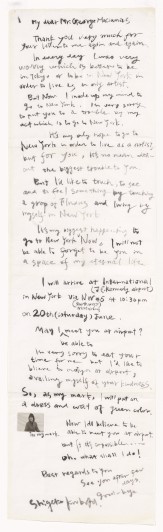 1
My dear Mr. George Maciunas
Thank you very much for
your letters to me again and again.
In every day I was very
worry which is better to be
in Tokyo or to be in New York in
order to live as my artist.
But Now I made up my mind to
go to New York. I'm very sorry
to put you to a trouble by my
to go to New York.
It's my only hope to go to
New York in order to live as a artist,
but for you, it's no more without
the biggest trouble to you
But I'd like to touch, to see
and to feel something by
a group of Fluxus and living by
myself in New York
It's my biggest happening to
go to New York Now. I will not
be able to forget to be you in
a space of my eternal life.
I will arrive at International
(J. Kennedy airport)
in New York via at 10:30 pm
on 20th (saturday) June.
May I meet you at airport?
be able to
I'm very sorry to eat your
time for me but I'd like to
believe to airport,
availing myself of your kindness.
So, as my mark, I will put on
a dress and of green color.
Now I'd believe to be
able to meet you at airport
but is it impossible
oh, what shall I do!
Best regards to you
See you again soon
good-bye
Shigeko Kubota